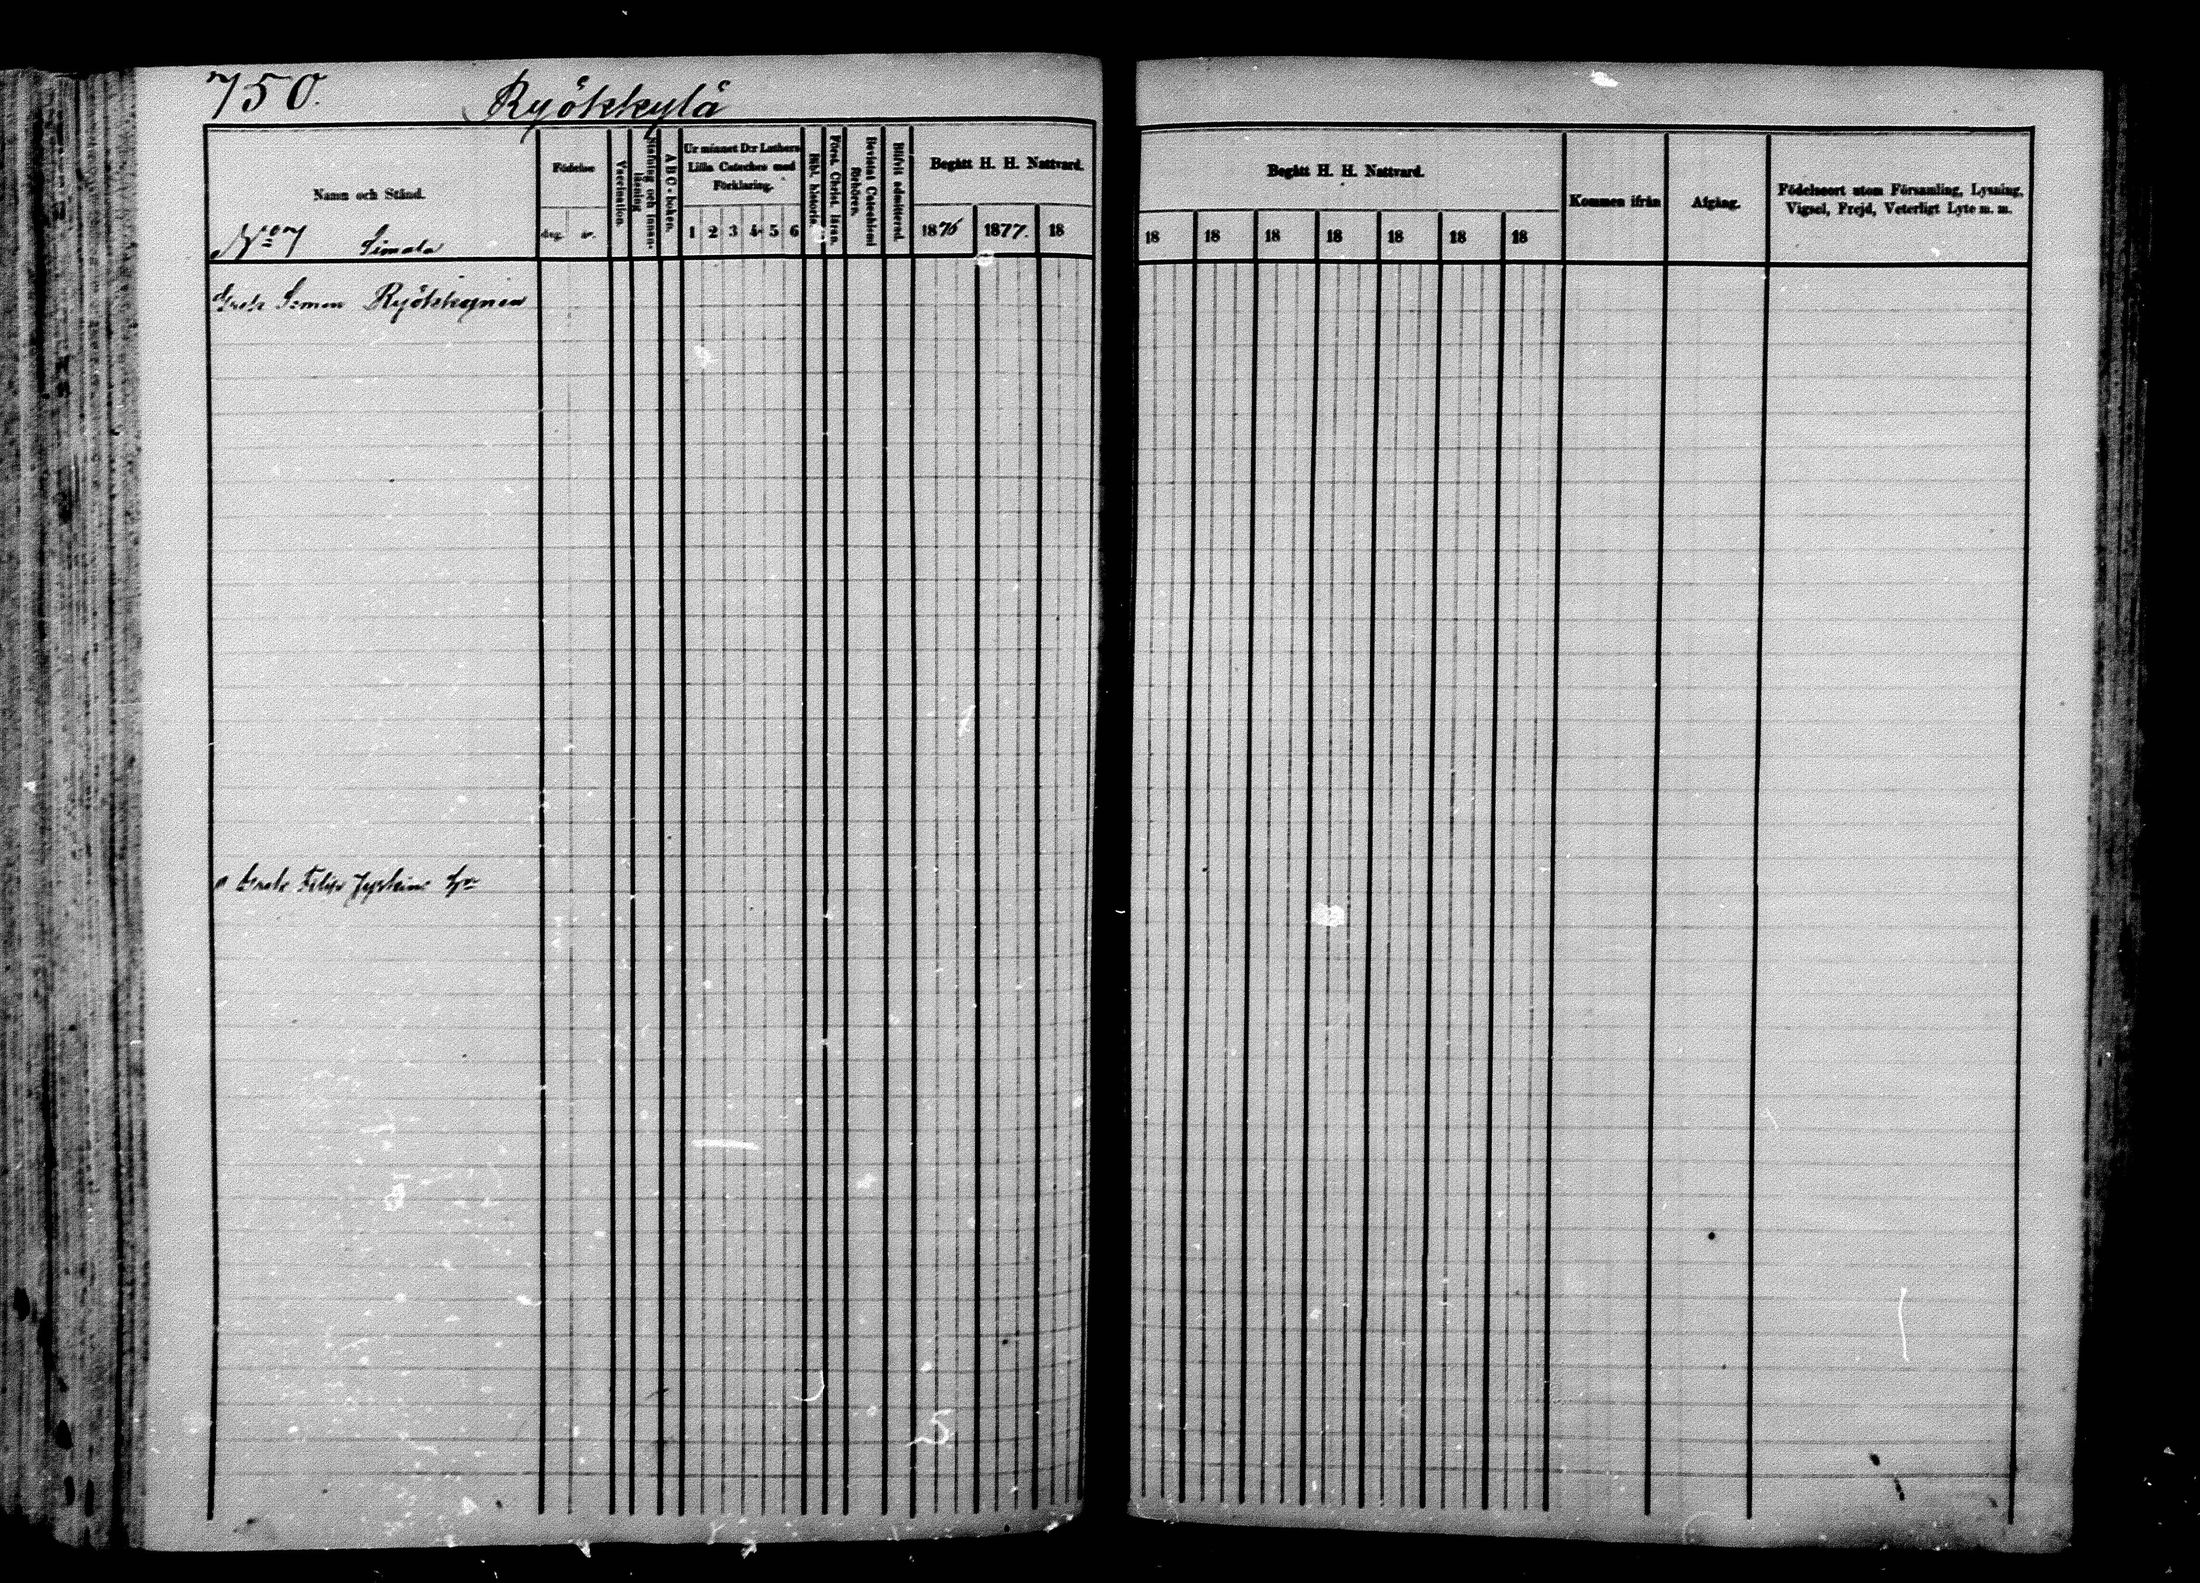 750.
Ryökkylä
Namn och Stånd.
Födelse
dag. år.
Vaccination.
Stafning och innan-
läsning
ABC-boken.
Ur minnet D:r Luthers
Lilla Cateches med
Förklaring.
1 2 3 4 5 6
Bibl. historia.
Först. Christ. läran.
Bevistat Catechismi
förhören.
Blifvit admitterad.
Begått H. H. Nattvard.
1876 1877. 18
Begått H. H. Nattvard.
18 18 18 18 18 18 18
Kommen ifrån
Afgång.
Födelseort utom Församling, Lysning,
Vigsel, Frejd, Veterligt Lyte m. m.
No 7 Simola
Simon Ryökkynen
Filip